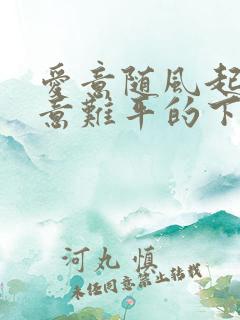 愛意随風起
意難平的下
河丸慎
未経同意禁止转载